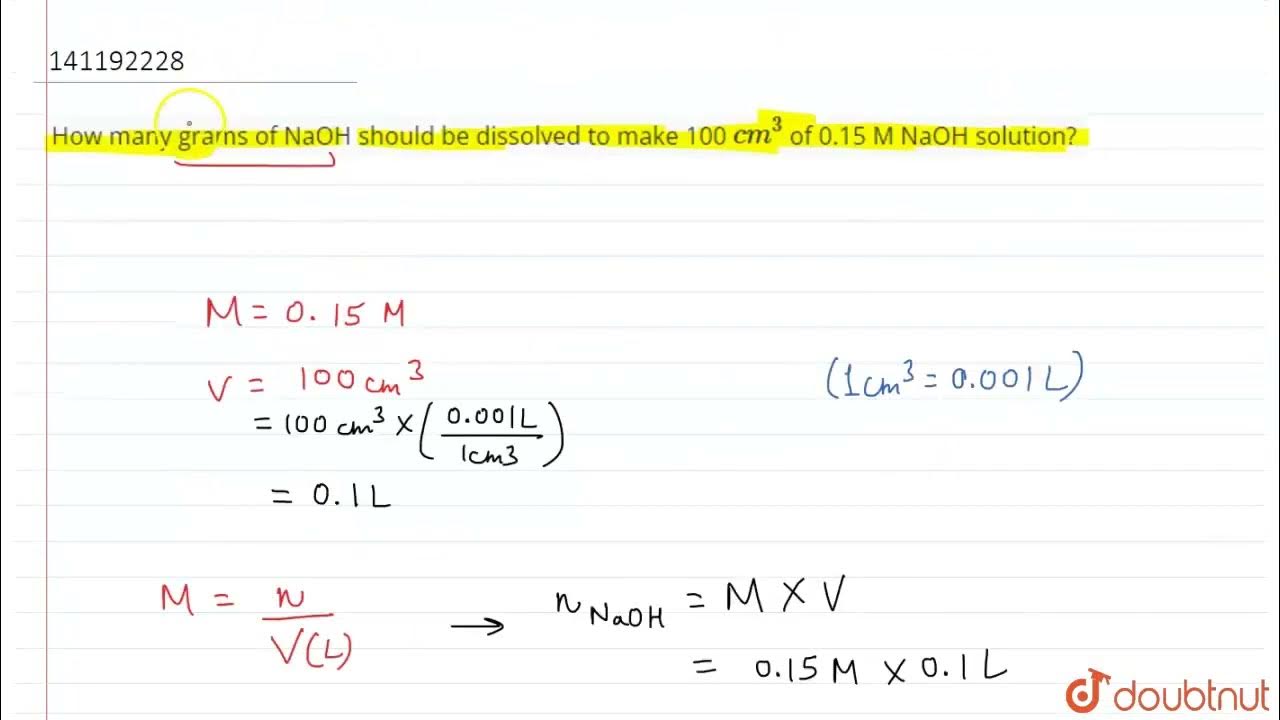 141192228
How many grams of NaOH should be dissolved to make 100 cm³ of 0.15 M NaOH solution?
M = 0.15 M
V = 100 cm³
(1cm³ = 0.001L)
= 100 cm³ × (0.001L / 1cm3)
= 0.1L
M = n / V(L) → n NaOH = M × V
= 0.15 M × 0.1 L
doubtnut